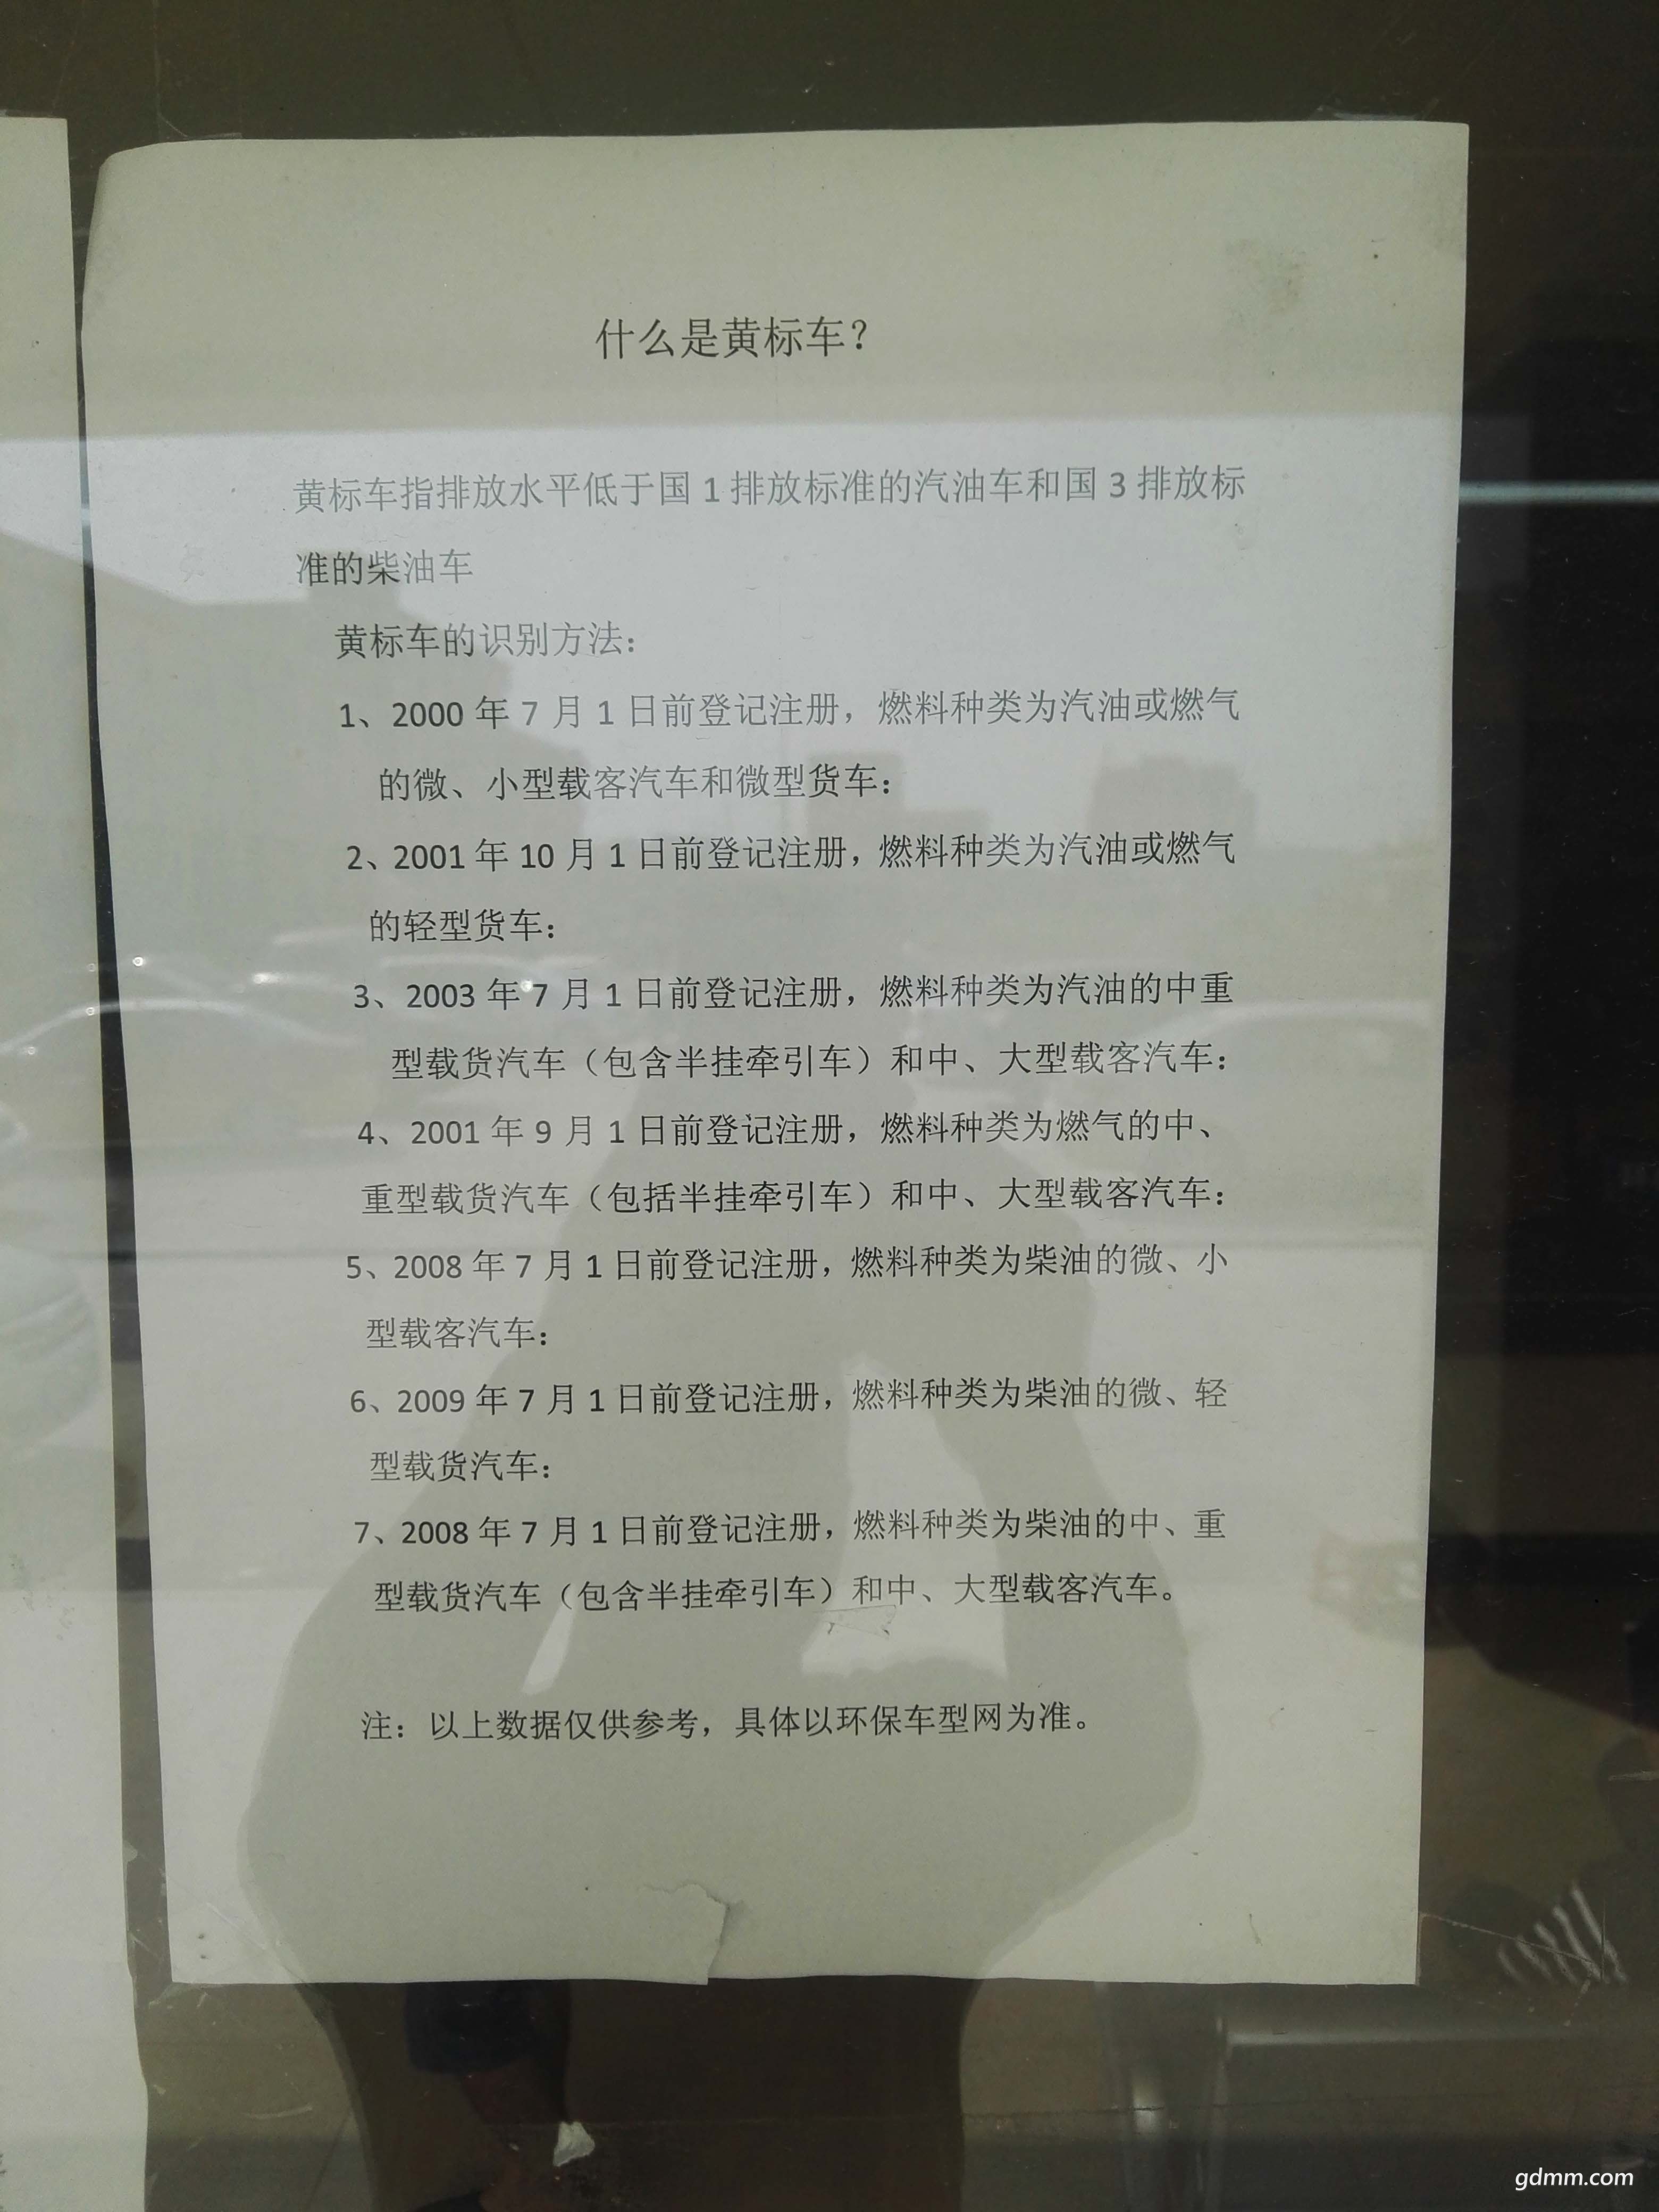 什么是黄标车？
黄标车指排放水平低于国1排放标准的汽油车和国3排放标
准的柴油车
黄标车的识别方法：
1、2000年7月1日前登记注册，燃料种类为汽油或燃气
的微、小型载客汽车和微型货车：
2、2001年10月1日前登记注册，燃料种类为汽油或燃气
的轻型货车：
3、2003年7月1日前登记注册，燃料种类为汽油的中重
型载货汽车（包含半挂牵引车）和中、大型载客汽车：
4、2001年9月1日前登记注册，燃料种类为燃气的中、
重型载货汽车（包括半挂牵引车）和中、大型载客汽车：
5、2008年7月1日前登记注册，燃料种类为柴油的微、小
型载客汽车：
6、2009年7月1日前登记注册，燃料种类为柴油的微、轻
型载货汽车：
7、2008年7月1日前登记注册，燃料种类为柴油的中、重
型载货汽车（包含半挂牵引车）和中、大型载客汽车。
注：以上数据仅供参考，具体以环保车型网为准。
gdmm.com